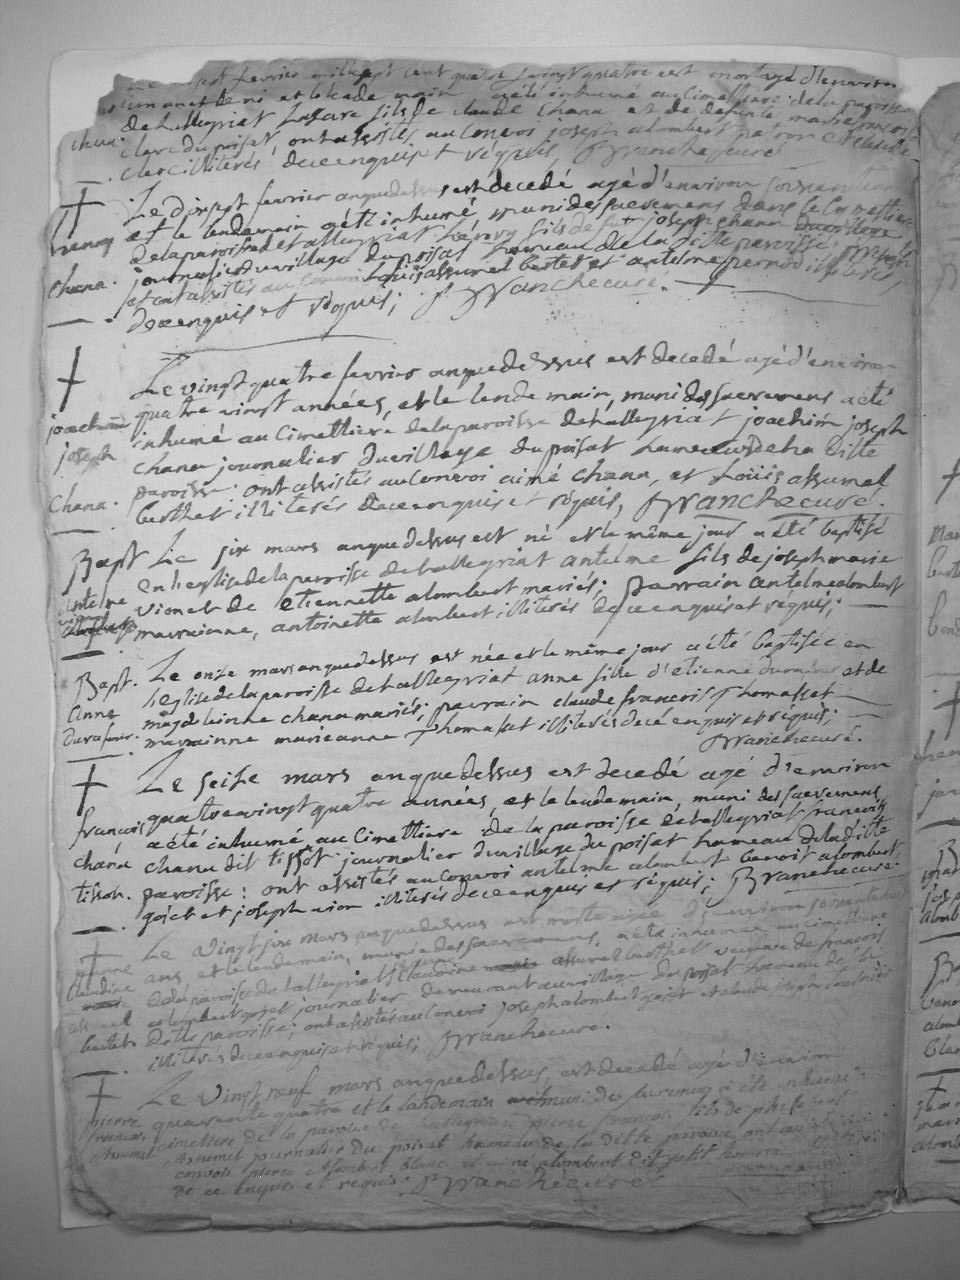 fevrier mil sept cent quatre vingt quatre est mort agé d'environ
et le lendemain a été inhumé au cimettiere de la paroisse
chana
de talleyriat Lazare fils de claude chana et de defunte marie francoise
clerc du poisat, ont assistés au convoi joseph alombert
clerc illiterés de ce enquis et réquis, Branche curé
Le dixsept fevrier an que dessus est decedé agé d'environ soixante
henry
et le lendemain a été inhumé, muni des sacremens dans le cimettiere
de la paroisse de talleyriat henry fils de joseph chana
chana.
journalier du village du poisat hameau de la ditte paroisse
et ont assistés au convoi Louis assumel berthet et antelme pernod illiterés,
de ce enquis et réquis; Branche curé.
Le vingt quatre fevrier an que dessus est decedé agé d'environ
joachim
quatre vingt années, et le lendemain, muni des sacremens a été
joseph
inhumé au cimettiere de la paroisse de talleyriat joachim joseph
chana journalier du village du poisat hameau de la ditte
chana.
paroisse. ont assistés au convoi aimé chana, et Louis assumel
berthet illiterés de ce enquis et réquis, Branche curé.
Bapt
Le six mars an que dessus est né et le même jour a été baptisé
antelme
en l'eglise de la paroisse de talleyriat antelme fils de joseph marie
vionet de etiennette alombert mariés; parrain antelme alombert
marrainne, antoinette alombert illiterés de ce enquis et réquis;
Bapt.
Le onze mars an que dessus est née et le même jour a été baptisée en
anne
l'eglise de la paroisse de talleyriat anne fille d'etienne durafour et de
durafour.
magdeleinne chana mariés, parrain claude francois thomasset
marrainne marieanne thomasset illiterés de ce enquis et réquis;
Branche curé.
Le seise mars an que dessus est decedé agé d'environ
francois
quatre vingt quatre années, et le lendemain, muni des sacremens
a été inhumé au cimettiere de la paroisse de talleyriat francois
chana
chana dit tissot journalier du village du poisat hameau de la ditte
tissot.
paroisse: ont assistés au convoi antelme alombert benoit alombert
gojet et joseph vion illiterés de ce enquis et réquis; Branche curé
Le vingt six mars an que dessus est morte agée d'environ soixante
claudine
ans et le lendemain, munie des sacremens, a été inhumée au cimettiere
de la paroisse de talleyriat claudine assumel berthet veuve de francois
assumel
alombert gojet journalier demeurant au village du poisat hameau de la
berthet
ditte paroisse; ont assistés au convoi joseph alombert gojet et claude
illiterés de ce enquis et réquis; Branche curé.
Le vingt neuf mars an que dessus, est decedé agé d'environ
pierre
quarante quatre et le lendemain muni des sacremens a été inhumé
francois
cimettiere de la paroisse de talleyriat pierre francois fils de
assumel
assumel journalier du poisat hameau de la ditte paroisse, ont
convoi pierre alombert blanc et alombert dit petit
de ce enquis et requis Branche curé